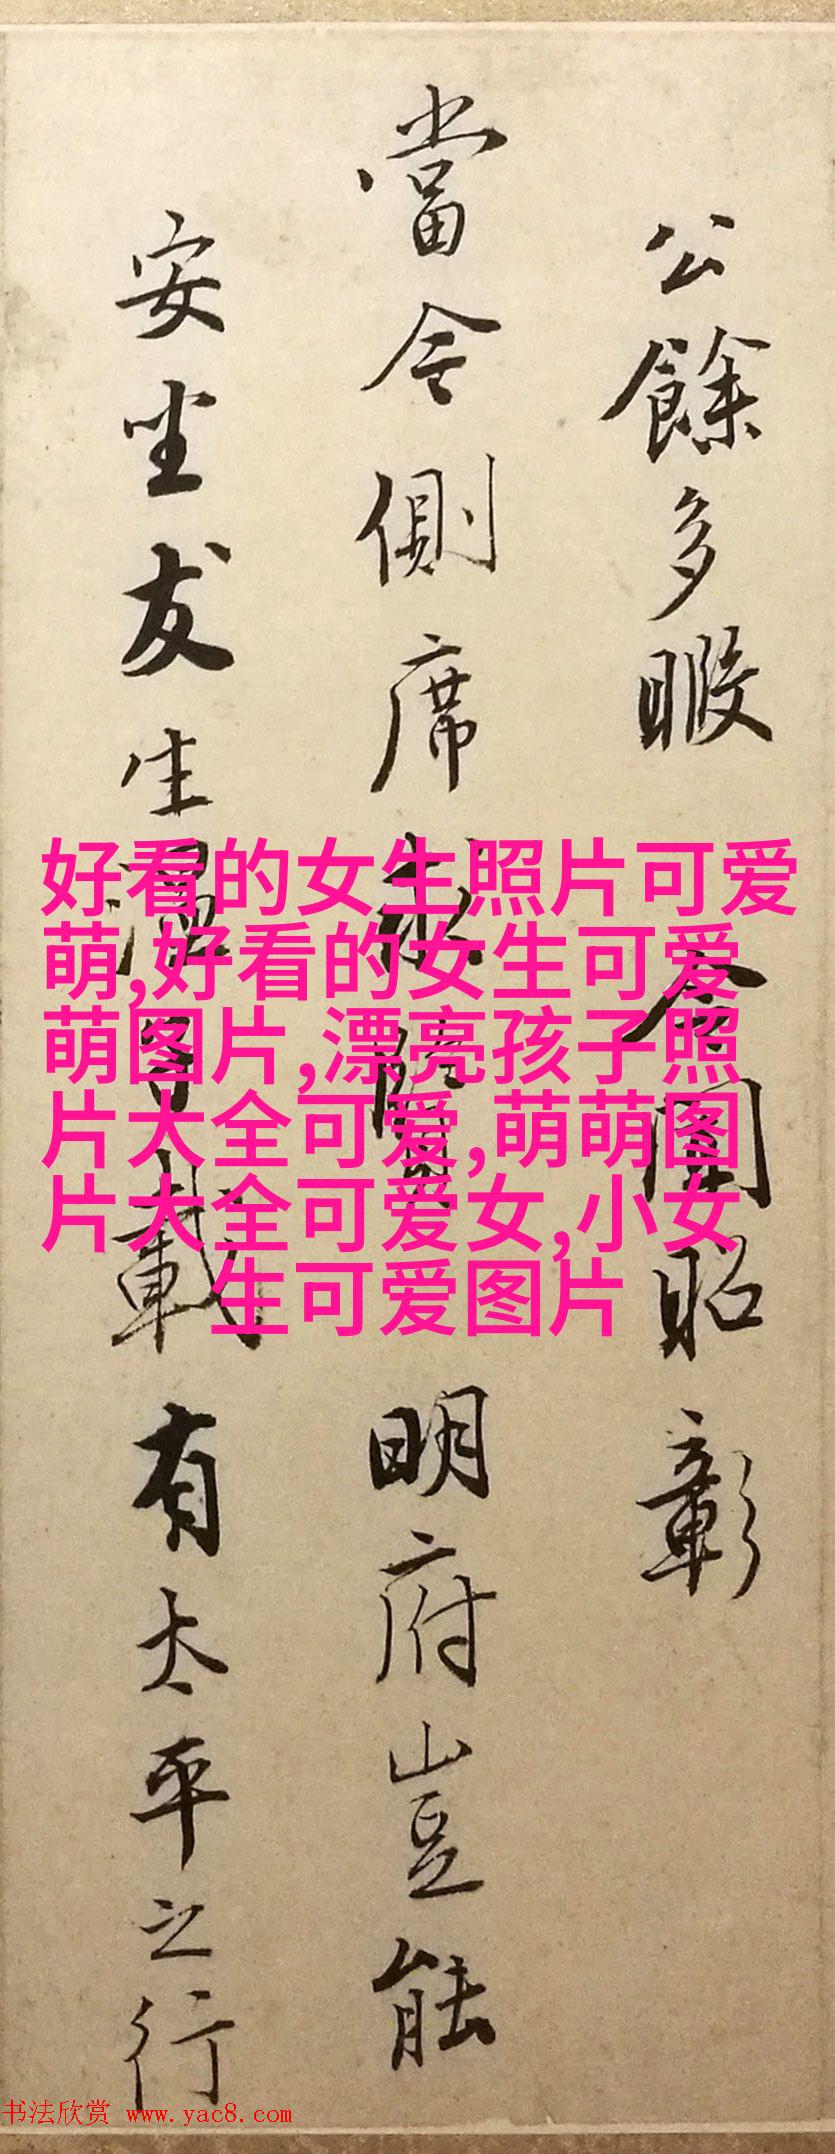 公餘多暇
令圍昭彰
當令側席求賢
明府豈能
安坐友生
載有太平之行
好看的女生照片可爱
萌,好看的女生可爱
萌图片,漂亮孩子照
片大全可爱,萌萌图
片大全可爱女,小女
生可爱图片
书法欣赏 www.yac8.com